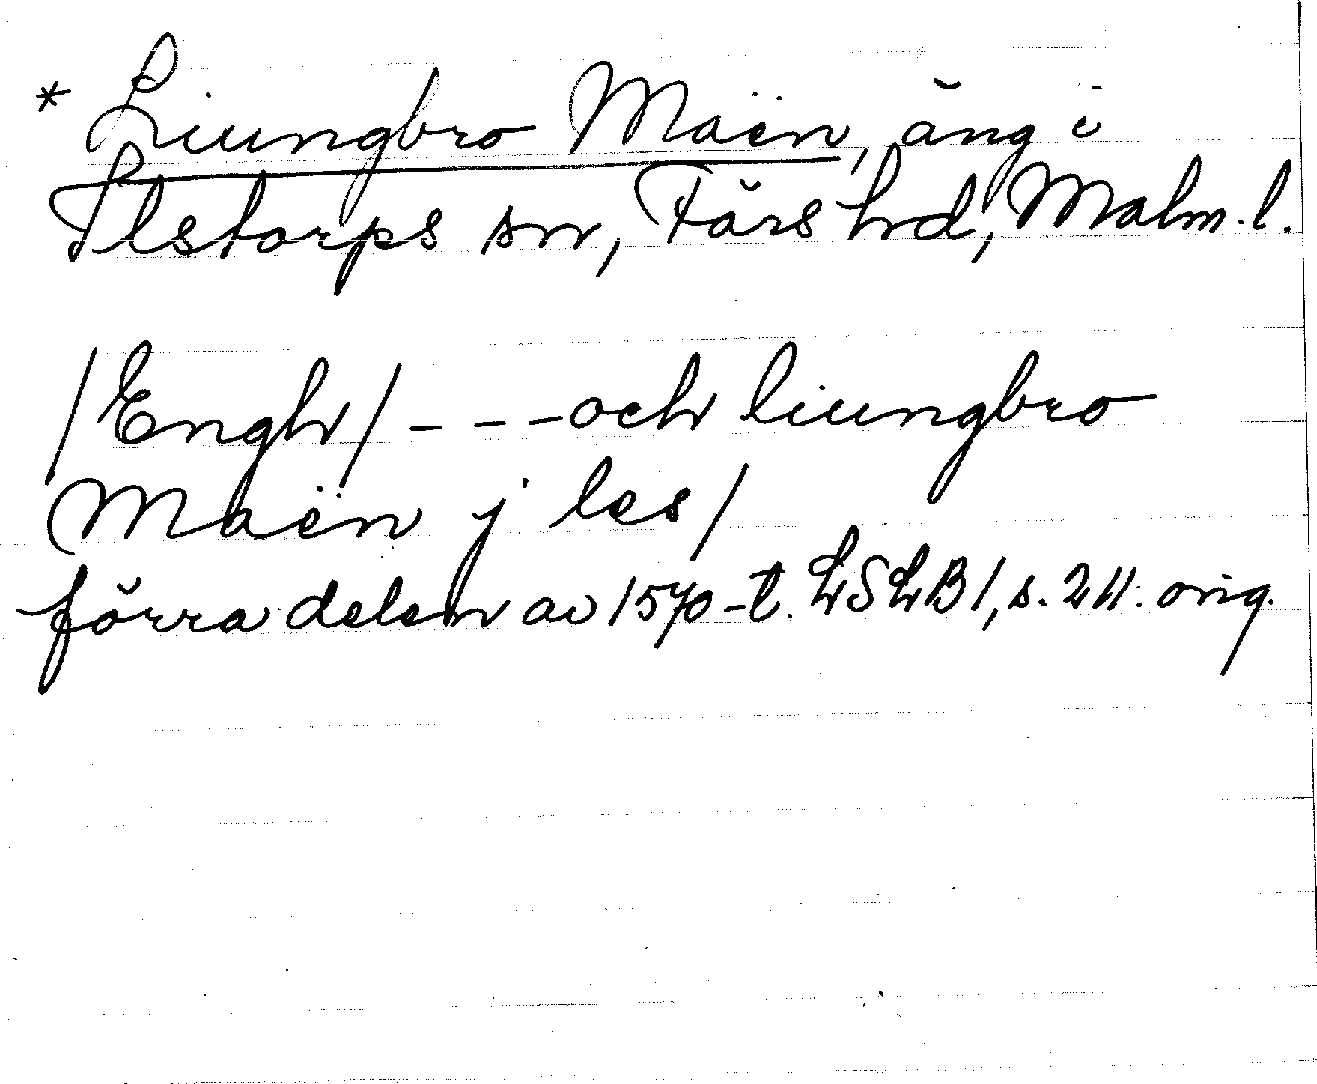 * Liungbro Maën, äng i
Ilstorps sn, Färs hd, Malm. l.
/Engh/ - - - och liungbro
Maën j les/
förra delen av 1570-t. LSLB1, s. 211. orig.